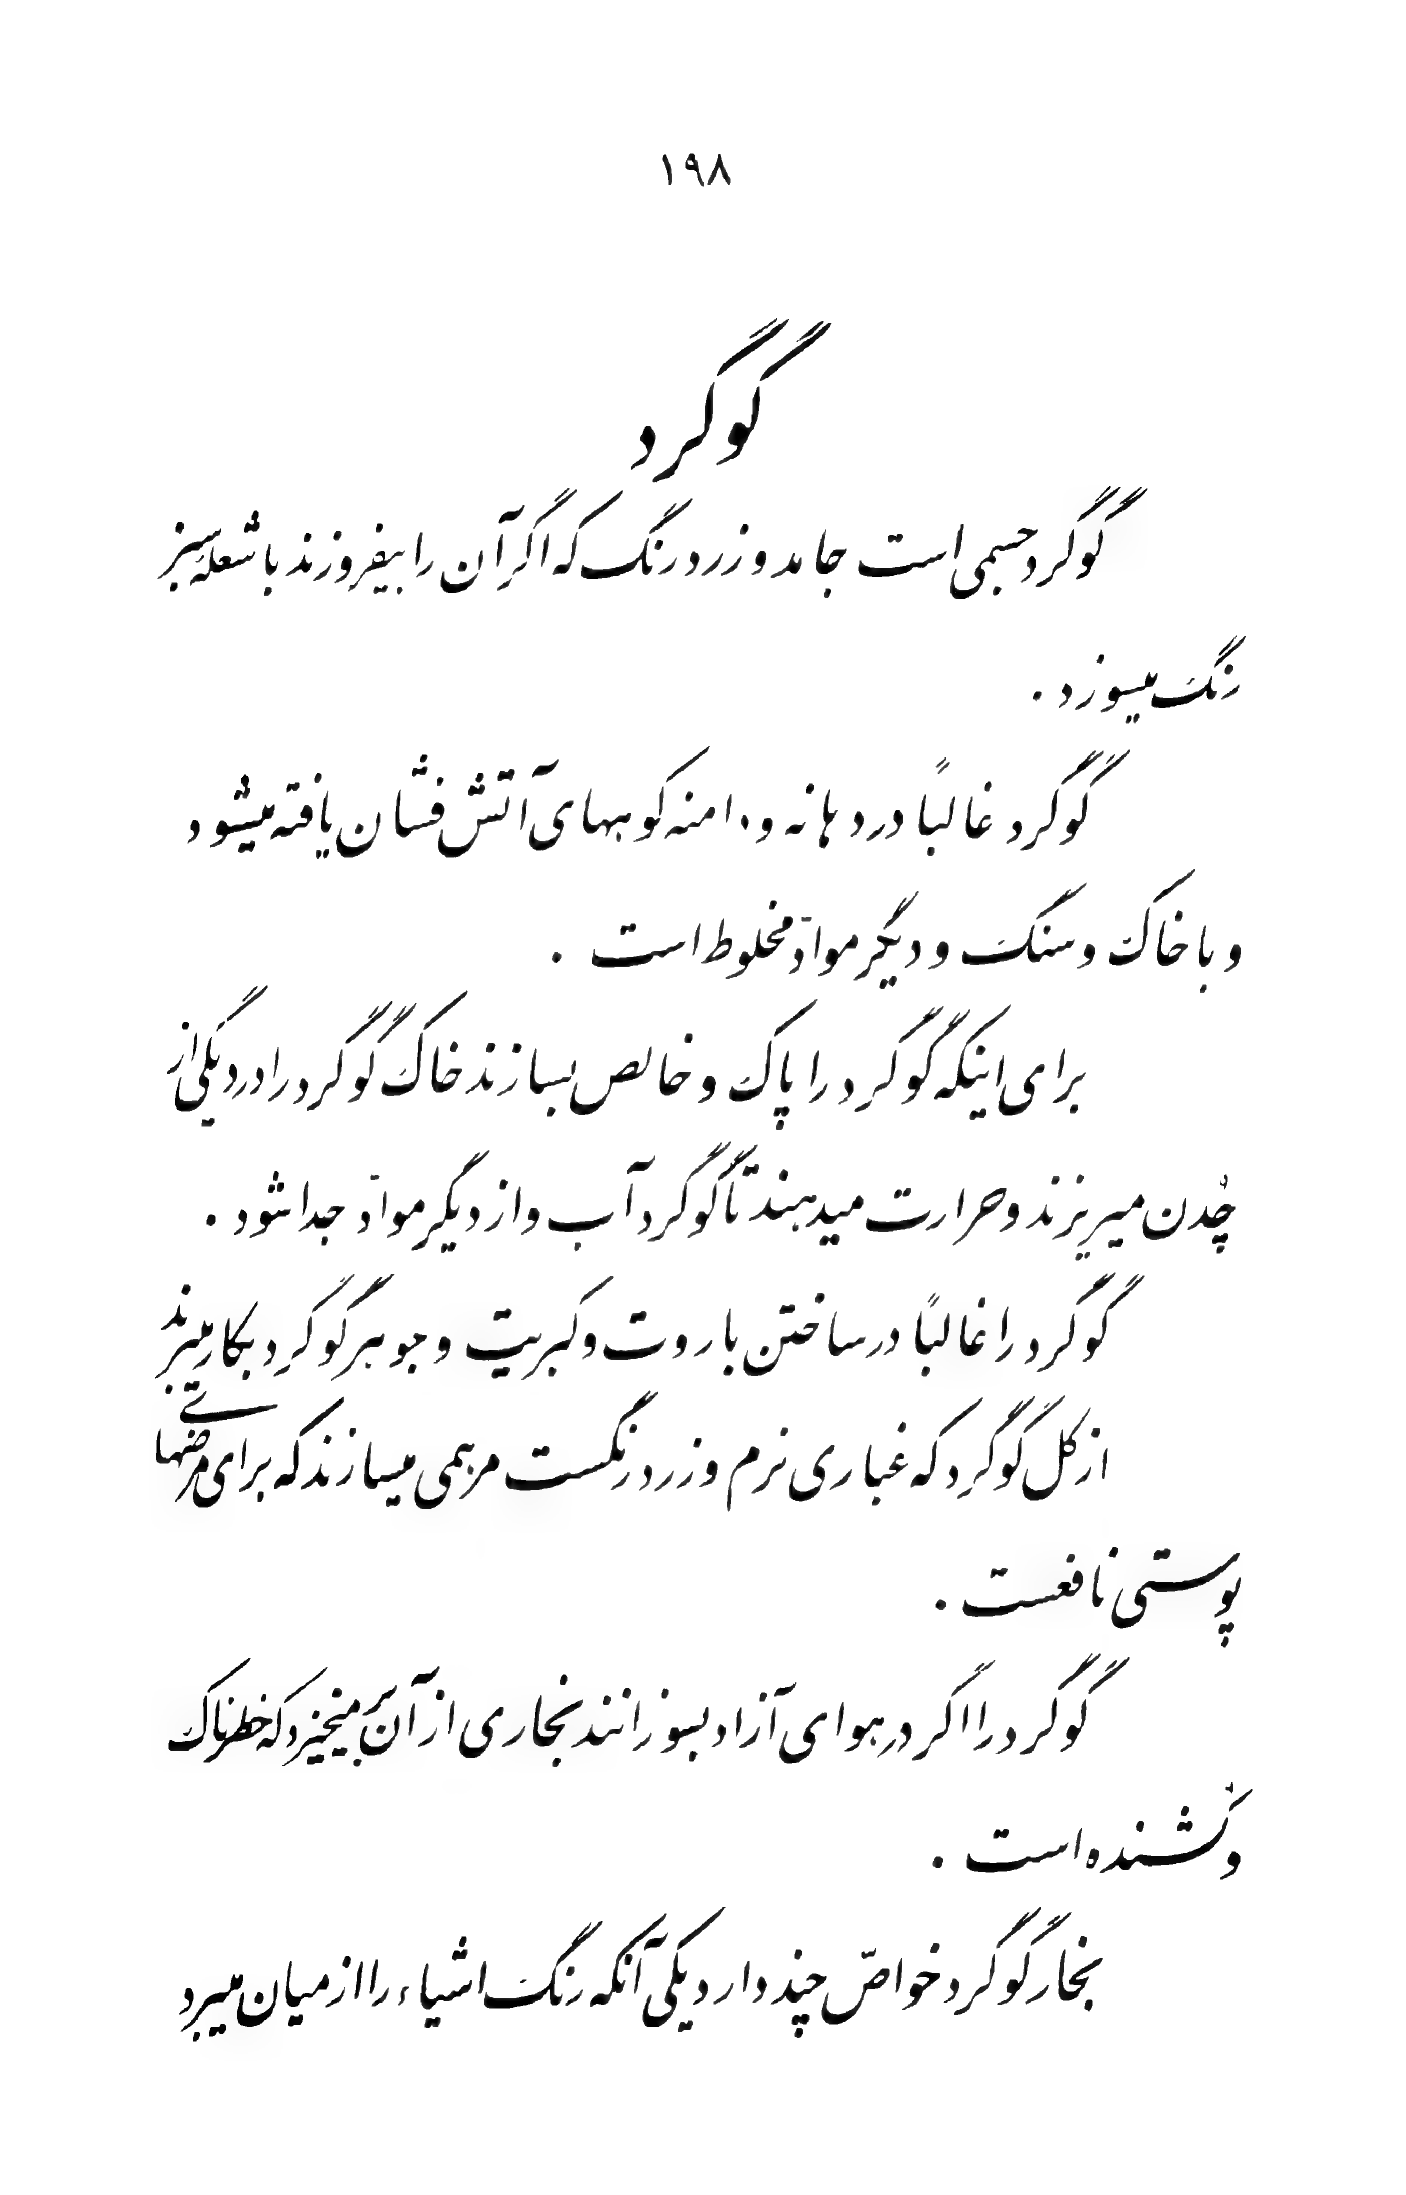 ۱۹۸
گوگرد
گوگرد جسمی است جامد و زرد رنگ که اگر آن را بیفروزند با شعلهٔ سبز
رنگ میسوزد .
گوگرد غالبًا در دهانه و دامنه کوههای آتش فشان یافته میشود
و با خاک و سنگ و دیگر موادّ مخلوط است .
برای اینکه گوگرد را پاک و خالص بسازند خاک گوگرد را در دیگی از
چُدن میریزند و حرارت میدهند تا گوگرد آب و از دیگر موادّ جدا شود .
گوگرد را غالبًا در ساختن باروت و کبریت و جوهر گوگرد بکار میبرند
از گل گوگرد که غباری نرم و زرد رنگست مرهمی میسازند که برای مرضهای
پوستی نافعست .
گوگرد را اگر در هوای آزاد بسوزانند بخاری از آن بر میخیزد که خطرناک
و کُشنده است .
بخار گوگرد خواصّ چند دارد یکی آنکه رنگ اشیاء را از میان میبرد